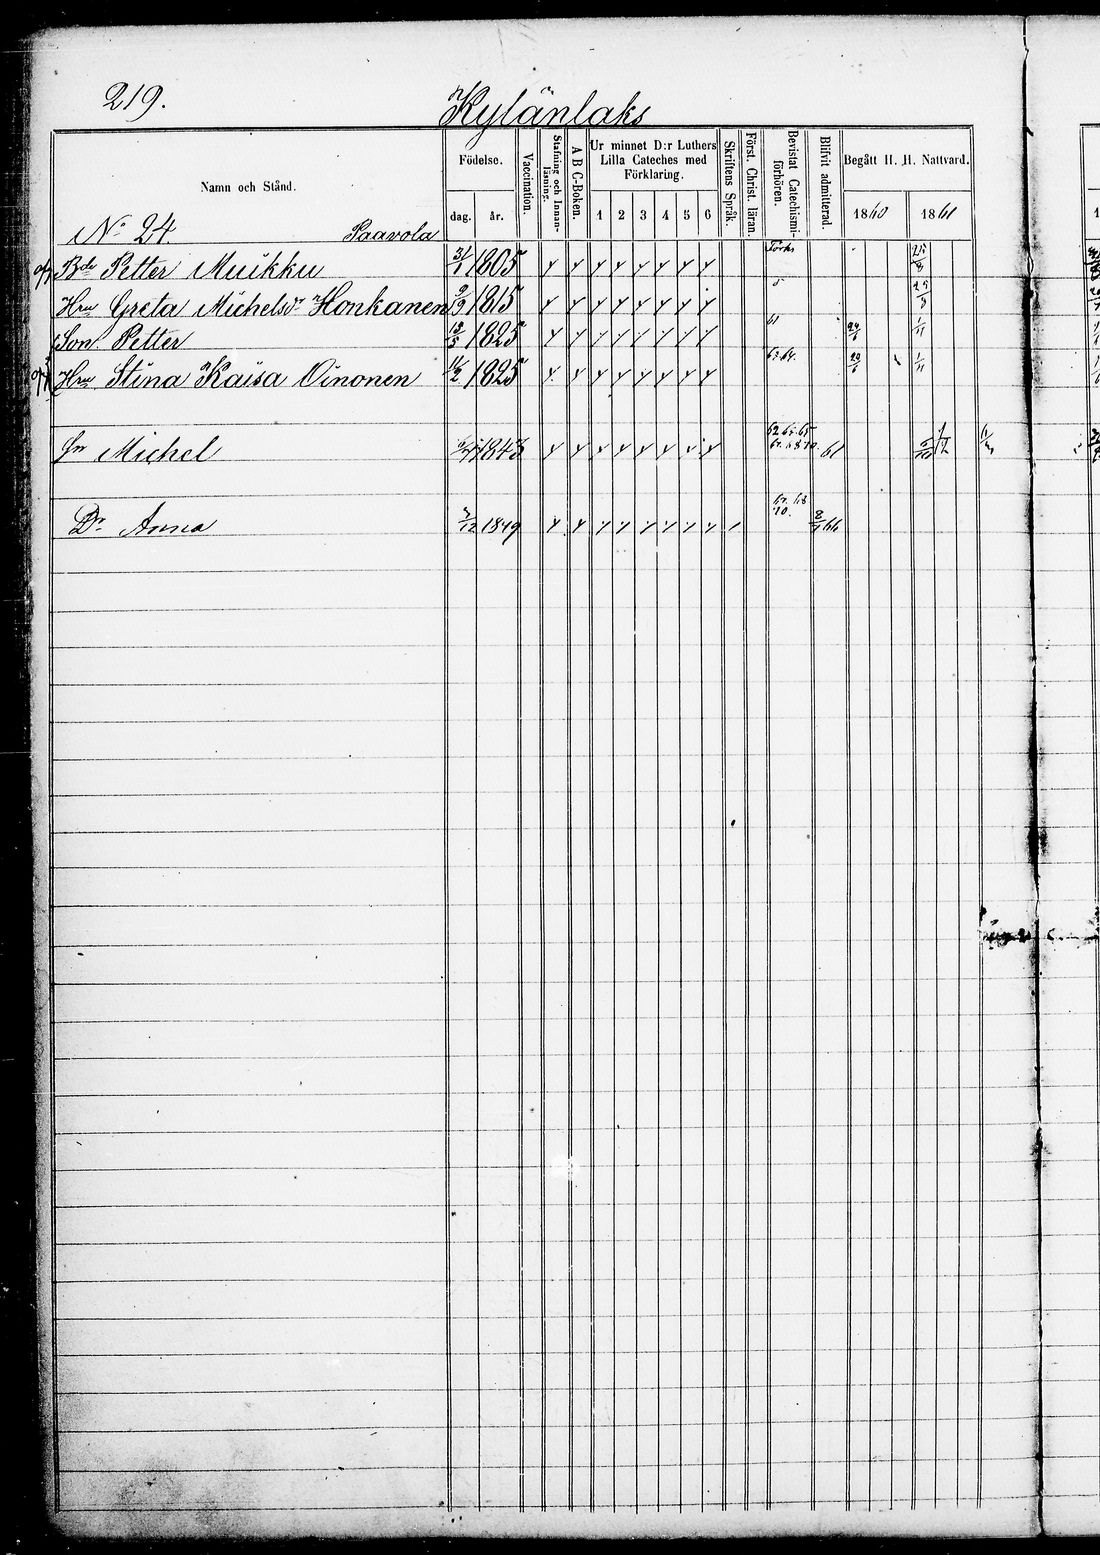 219. Kylänlaks
Namn och Stånd. Födelse. dag. år. Vaccination. Stafning och Innanläsning. A B C-Boken. Ur minnet D:r Luthers Lilla Cateches med Förklaring. 1 2 3 4 5 6 Skriftens Språk. Först. Christ. läran. Bevistat Catechismiförhören. Blifvit admitterad. Begått H. H. Nattvard. 1860 1861
No 24. Paavola
Bde Petter Muikku 31/1 1805 25/8
Hru Greta Michelsdr Honkanen 9/9 1815
Son Petter 1825 61 1/11
Hru Stina Kaisa Oinonen 16/2 1825 63.64. 1/11
Michel 1843 61
Dr Anna 1849 67. 68 70. 8/7 66